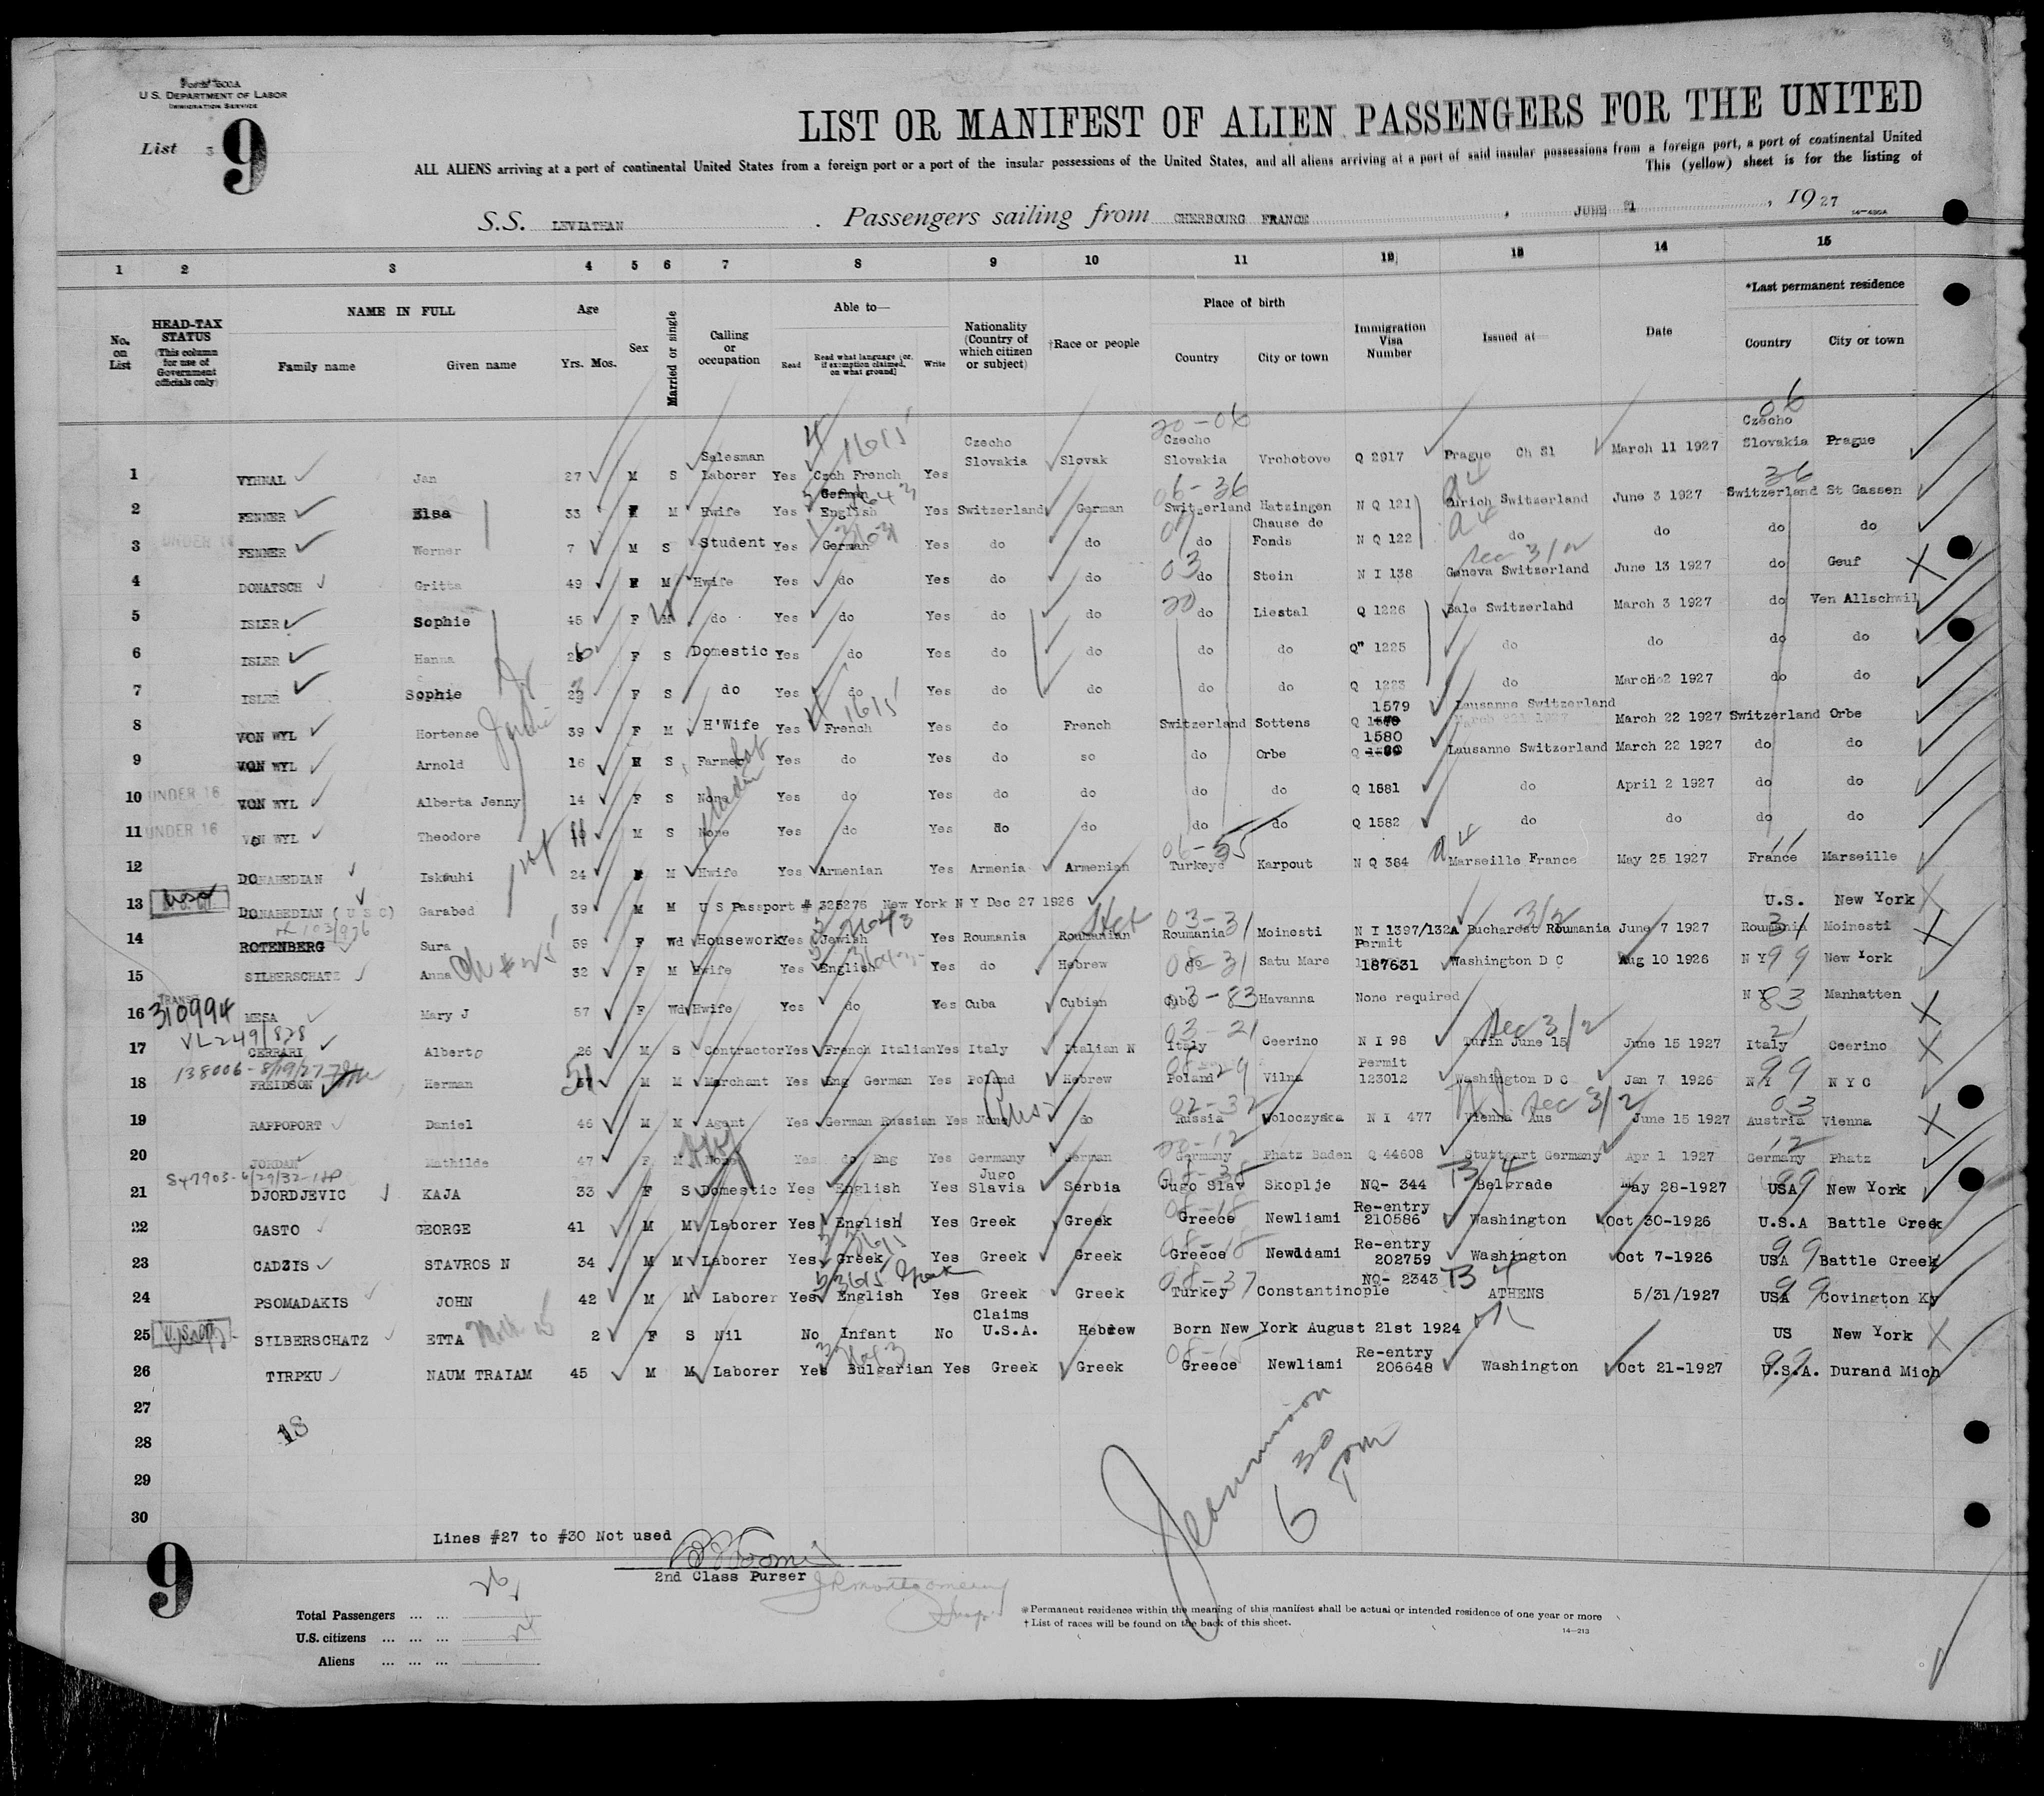 Form 500A
U. S. DEPARTMENT OF LABOR
IMMIGRATION SERVICE
List 9
LIST OR MANIFEST OF ALIEN PASSENGERS FOR THE UNITED
ALL ALIENS arriving at a port of continental United States from a foreign port or a port of the insular possessions of the United States, and all aliens arriving at a port of said insular possessions from a foreign port, a port of continental United
This (yellow) sheet is for the listing of
S.S. LEVIATHAN . Passengers sailing from CHERBOURG FRANCE , JUNE 21 , 1927
14-430A
1 2 3 4 5 6 7 8 9 10 11 12 13 14 15
No. on List
HEAD-TAX STATUS (This column for use of Government officials only)
NAME IN FULL Family name Given name
Age Yrs. Mos.
Sex
Married or single
Calling or occupation
Able to— Read Read what language [or, if exemption claimed, on what ground] Write
Nationality (Country of which citizen or subject)
†Race or people
Place of birth Country City or town
Immigration Visa Number
Issued at—
Date
*Last permanent residence Country City or town
1 VYHNAL Jan 27 M S Salesman Laborer Yes Czch French German Yes Czecho Slovakia Slovak 20-06 Czecho Slovakia Vrchotove Q 2917 Prague Ch Sl March 11 1927 06 Czecho Slovakia Prague
2 FENNER Elsa 33 F M Hwife Yes English Yes Switzerland German 06-36 Switzerland Hatzingen N Q 121 Zurich Switzerland June 3 1927 36 Switzerland St Gassen
3 UNDER 16 FENNER Werner 7 M S Student Yes German Yes do do do Chause de Fonds N Q 122 do do do do
4 DONATSCH Gritta 49 F M Hwife Yes do Yes do do 03 do Stein N I 138 Geneva Switzerland June 13 1927 do Genf
5 ISLER Sophie 45 F M do Yes do Yes do do 20 do Liestal Q 1226 Bale Switzerland March 3 1927 do Ven Allschwil
6 ISLER Hanna 26 F S Domestic Yes do Yes do do do do Q" 1225 do do do do
7 ISLER Sophie 23 F S do Yes do Yes do do do do Q 1223 do March 2 1927 do do
8 VON WYL Hortense 39 F M H'Wife Yes French Yes do French Switzerland Sottens Q 1579 Lausanne Switzerland March 22 1927 Switzerland Orbe
9 VON WYL Arnold 16 M S Farmer Yes do Yes do so do Orbe Q 1580 Lausanne Switzerland March 22 1927 do do
10 UNDER 16 VON WYL Alberta Jenny 14 F S None Yes do Yes do do do do Q 1581 do April 2 1927 do do
11 UNDER 16 VON WYL Theodore 11 M S None Yes do Yes do do do do Q 1582 do do do do
12 DONABEDIAN Iskouhi 24 F M Hwife Yes Armenian Yes Armenia Armenian 06-55 Turkeye Karpout N Q 384 Marseille France May 25 1927 France Marseille
13 DONABEDIAN (U S C) Garabed 39 M M U S Passport # 325276 New York N Y Dec 27 1926 U.S. New York
14 ROTENBERG Sura 59 F Wd Housework Yes Jewish Yes Roumania Roumanian 03-31 Roumania Moinesti N I 1397/132A Bucharest Roumania June 7 1927 31 Roumania Moinesti
15 SILBERSCHATZ Anna 32 F M Hwife Yes English Yes do Hebrew 08-31 do Satu Mare Permit 187631 Washington D C Aug 10 1926 N Y 99 New York
16 310994 MESA Mary J 57 F Wd Hwife Yes do Yes Cuba Cubian Cuba 83 Havanna None required N Y 83 Manhatten
VL 249/878
17 CERRARI Alberto 26 M S Contractor Yes French Italian Yes Italy Italian N 03-21 Italy Ceerino N I 98 Turin June 15 June 15 1927 21 Italy Ceerino
138006-8/19/27
18 FREIDSON Herman 51 M M Merchant Yes Eng German Yes Poland Hebrew 08-29 Poland Vilna Permit 123012 Washington D C Jan 7 1926 N Y 99 N Y C
19 RAPPOPORT Daniel 46 M M Agent Yes German Russian Yes None do 02-32 Russia Woloczyska N I 477 Vienna Aus June 15 1927 03 Austria Vienna
20 JORDAN Mathilde 47 F M None Yes do Eng Yes Germany German 20-12 Germany Phatz Baden Q 44608 Stuttgart Germany Apr 1 1927 12 Germany Phatz
847903-6/29/32
21 DJORDJEVIC KAJA 33 F S Domestic Yes English Yes Jugo Slavia Serbia 08-38 Jugo Slav Skoplje NQ- 344 B 4 Belgrade May 28-1927 USA 99 New York
22 GASTO GEORGE 41 M M Laborer Yes English Yes Greek Greek 08-18 Greece Newliami Re-entry 210586 Washington Oct 30-1926 U.S.A Battle Creek
23 CADZIS STAVROS N 34 M M Laborer Yes Greek Yes Greek Greek 08-18 Greece Newdiami Re-entry 202759 Washington Oct 7-1926 USA 99 Battle Creek
24 PSOMADAKIS JOHN 42 M M Laborer Yes English Yes Greek Greek 08-37 Turkey Constantinople NQ- 2343 B 4 ATHENS 5/31/1927 USA 99 Covington Ky
25 SILBERSCHATZ ETTA 2 F S Nil No Infant No Claims U.S.A. Hebrew Born New York August 21st 1924 US New York
26 TIRPKU NAUM TRAIAM 45 M M Laborer Yes Bulgarian Yes Greek Greek Greece Newliami Re-entry 206648 Washington Oct 21-1927 U.S.A. Durand Mich
27
28 18
29
30
Lines #27 to #30 Not used
6 30 pm
9
2nd Class Purser
JR Montgomery
Total Passengers ... ...
U.S. citizens ... ... ...
Aliens ... ... ...
* Permanent residence within the meaning of this manifest shall be actual or intended residence of one year or more
† List of races will be found on the back of this sheet.
14-213